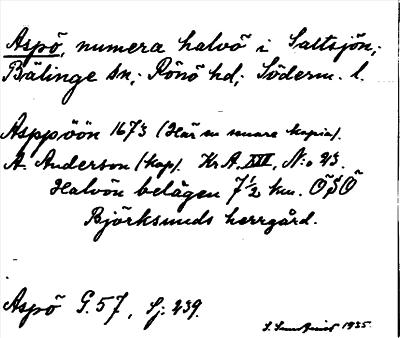 Aspö, numera halvö i Saltsjön;
Bälinge sn; Rönö hd; Söderm. l.
Asppöön 1673 (Här en senare kopia).
A. Anderson (kop). Kr A. XIII, N:o 23.
Halvön belägen 7 1/2 km. ÖSÖ
Björksunds herrgård.
Aspö G. 57, Sj: 239.
1935.